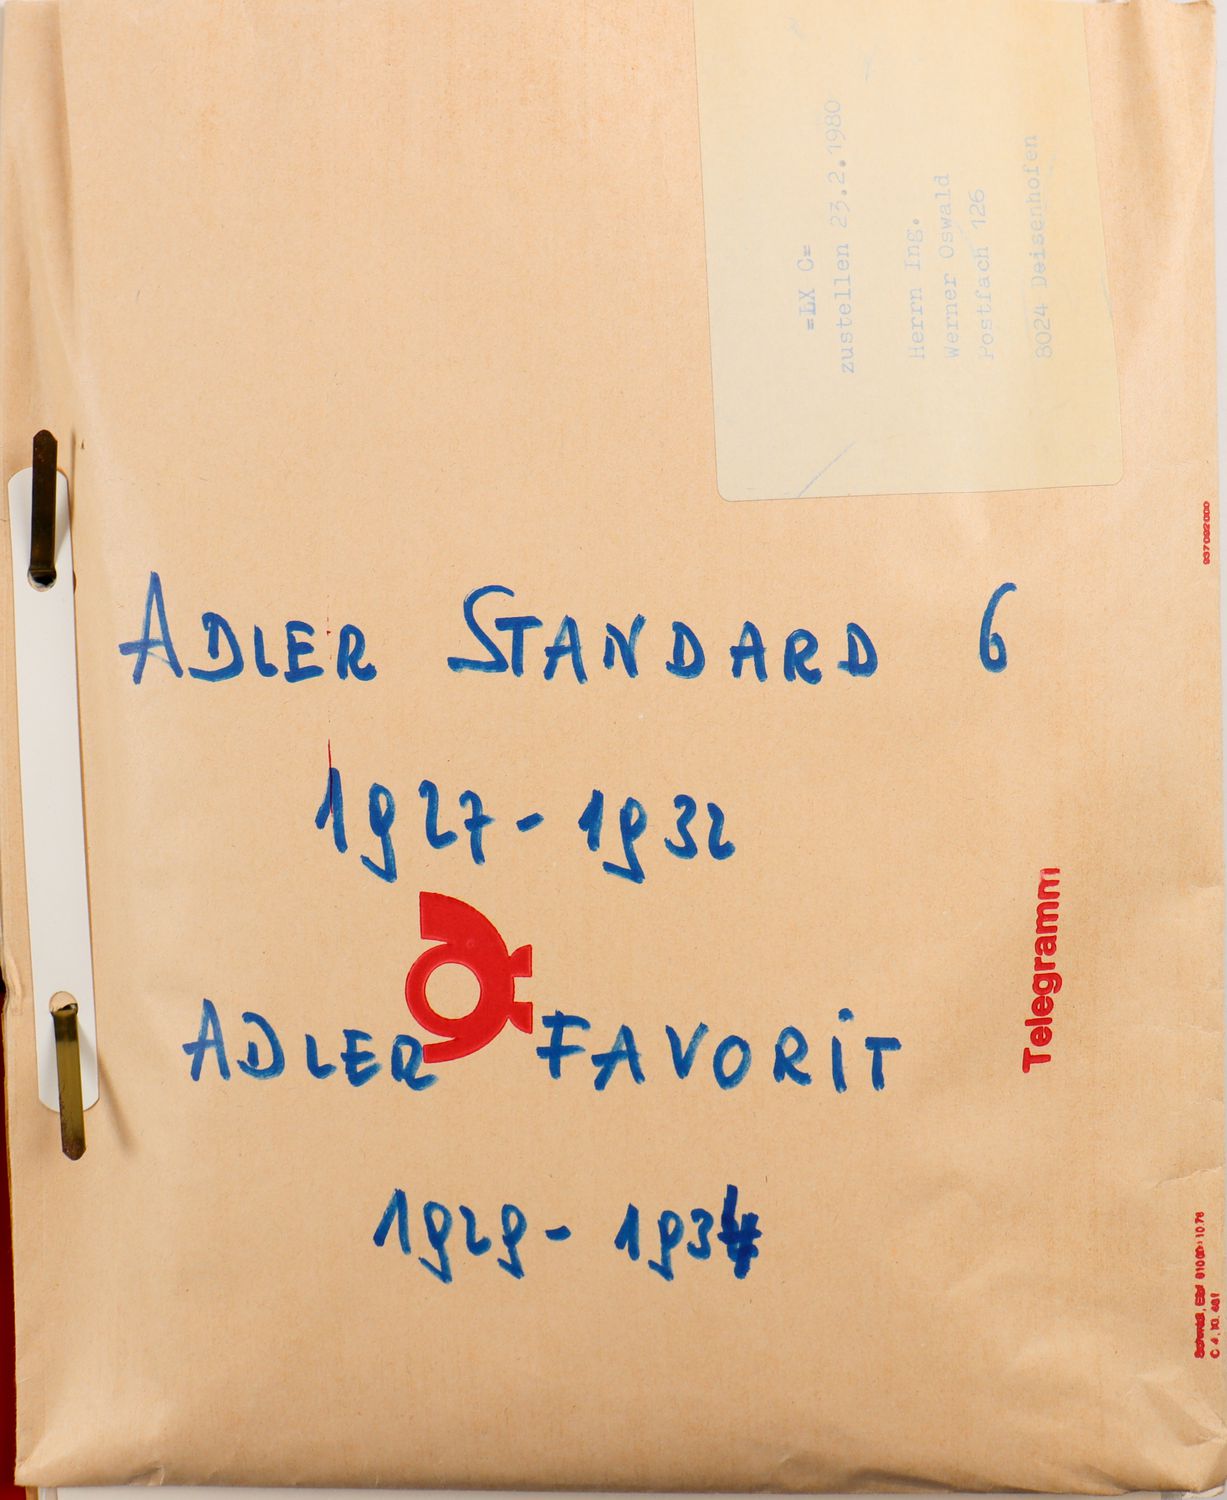 =LX C=
zustellen 23.2.1980
Herrn Ing.
Werner Oswald
Postfach 126
8024 Deisenhofen
ADLER STANDARD 6
1927-1932
ADLER FAVORIT
1929-1934
Telegramm
937092000